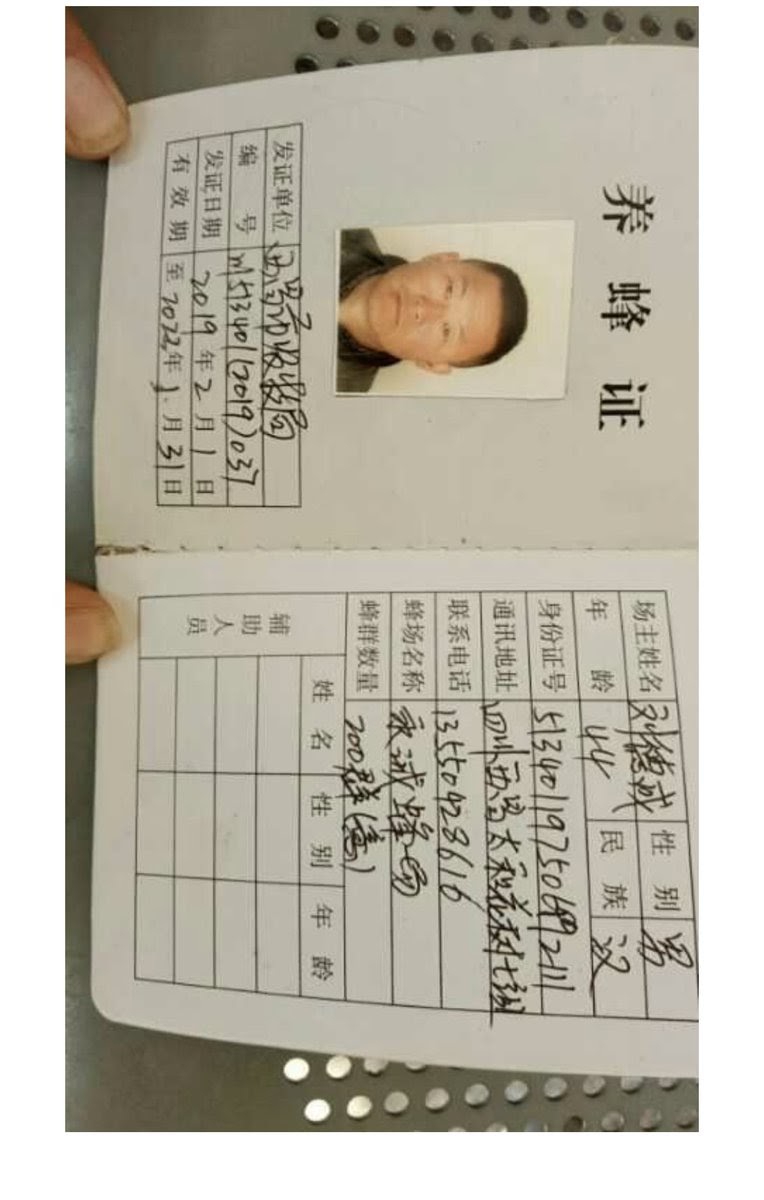 养蜂证
发证单位 西昌市农牧局
编号 川513401(2019)037
发证日期 2019年2月1日
有效期 至2022年1月31日
场主姓名 刘德诚 性别 男
年龄 44 民族 汉
身份证号
通讯地址 四川西昌太和花村七组
联系电话 13550428616
蜂场名称 永诚蜂场
蜂群数量 200群(意)
辅助人员 姓名 性别 年龄